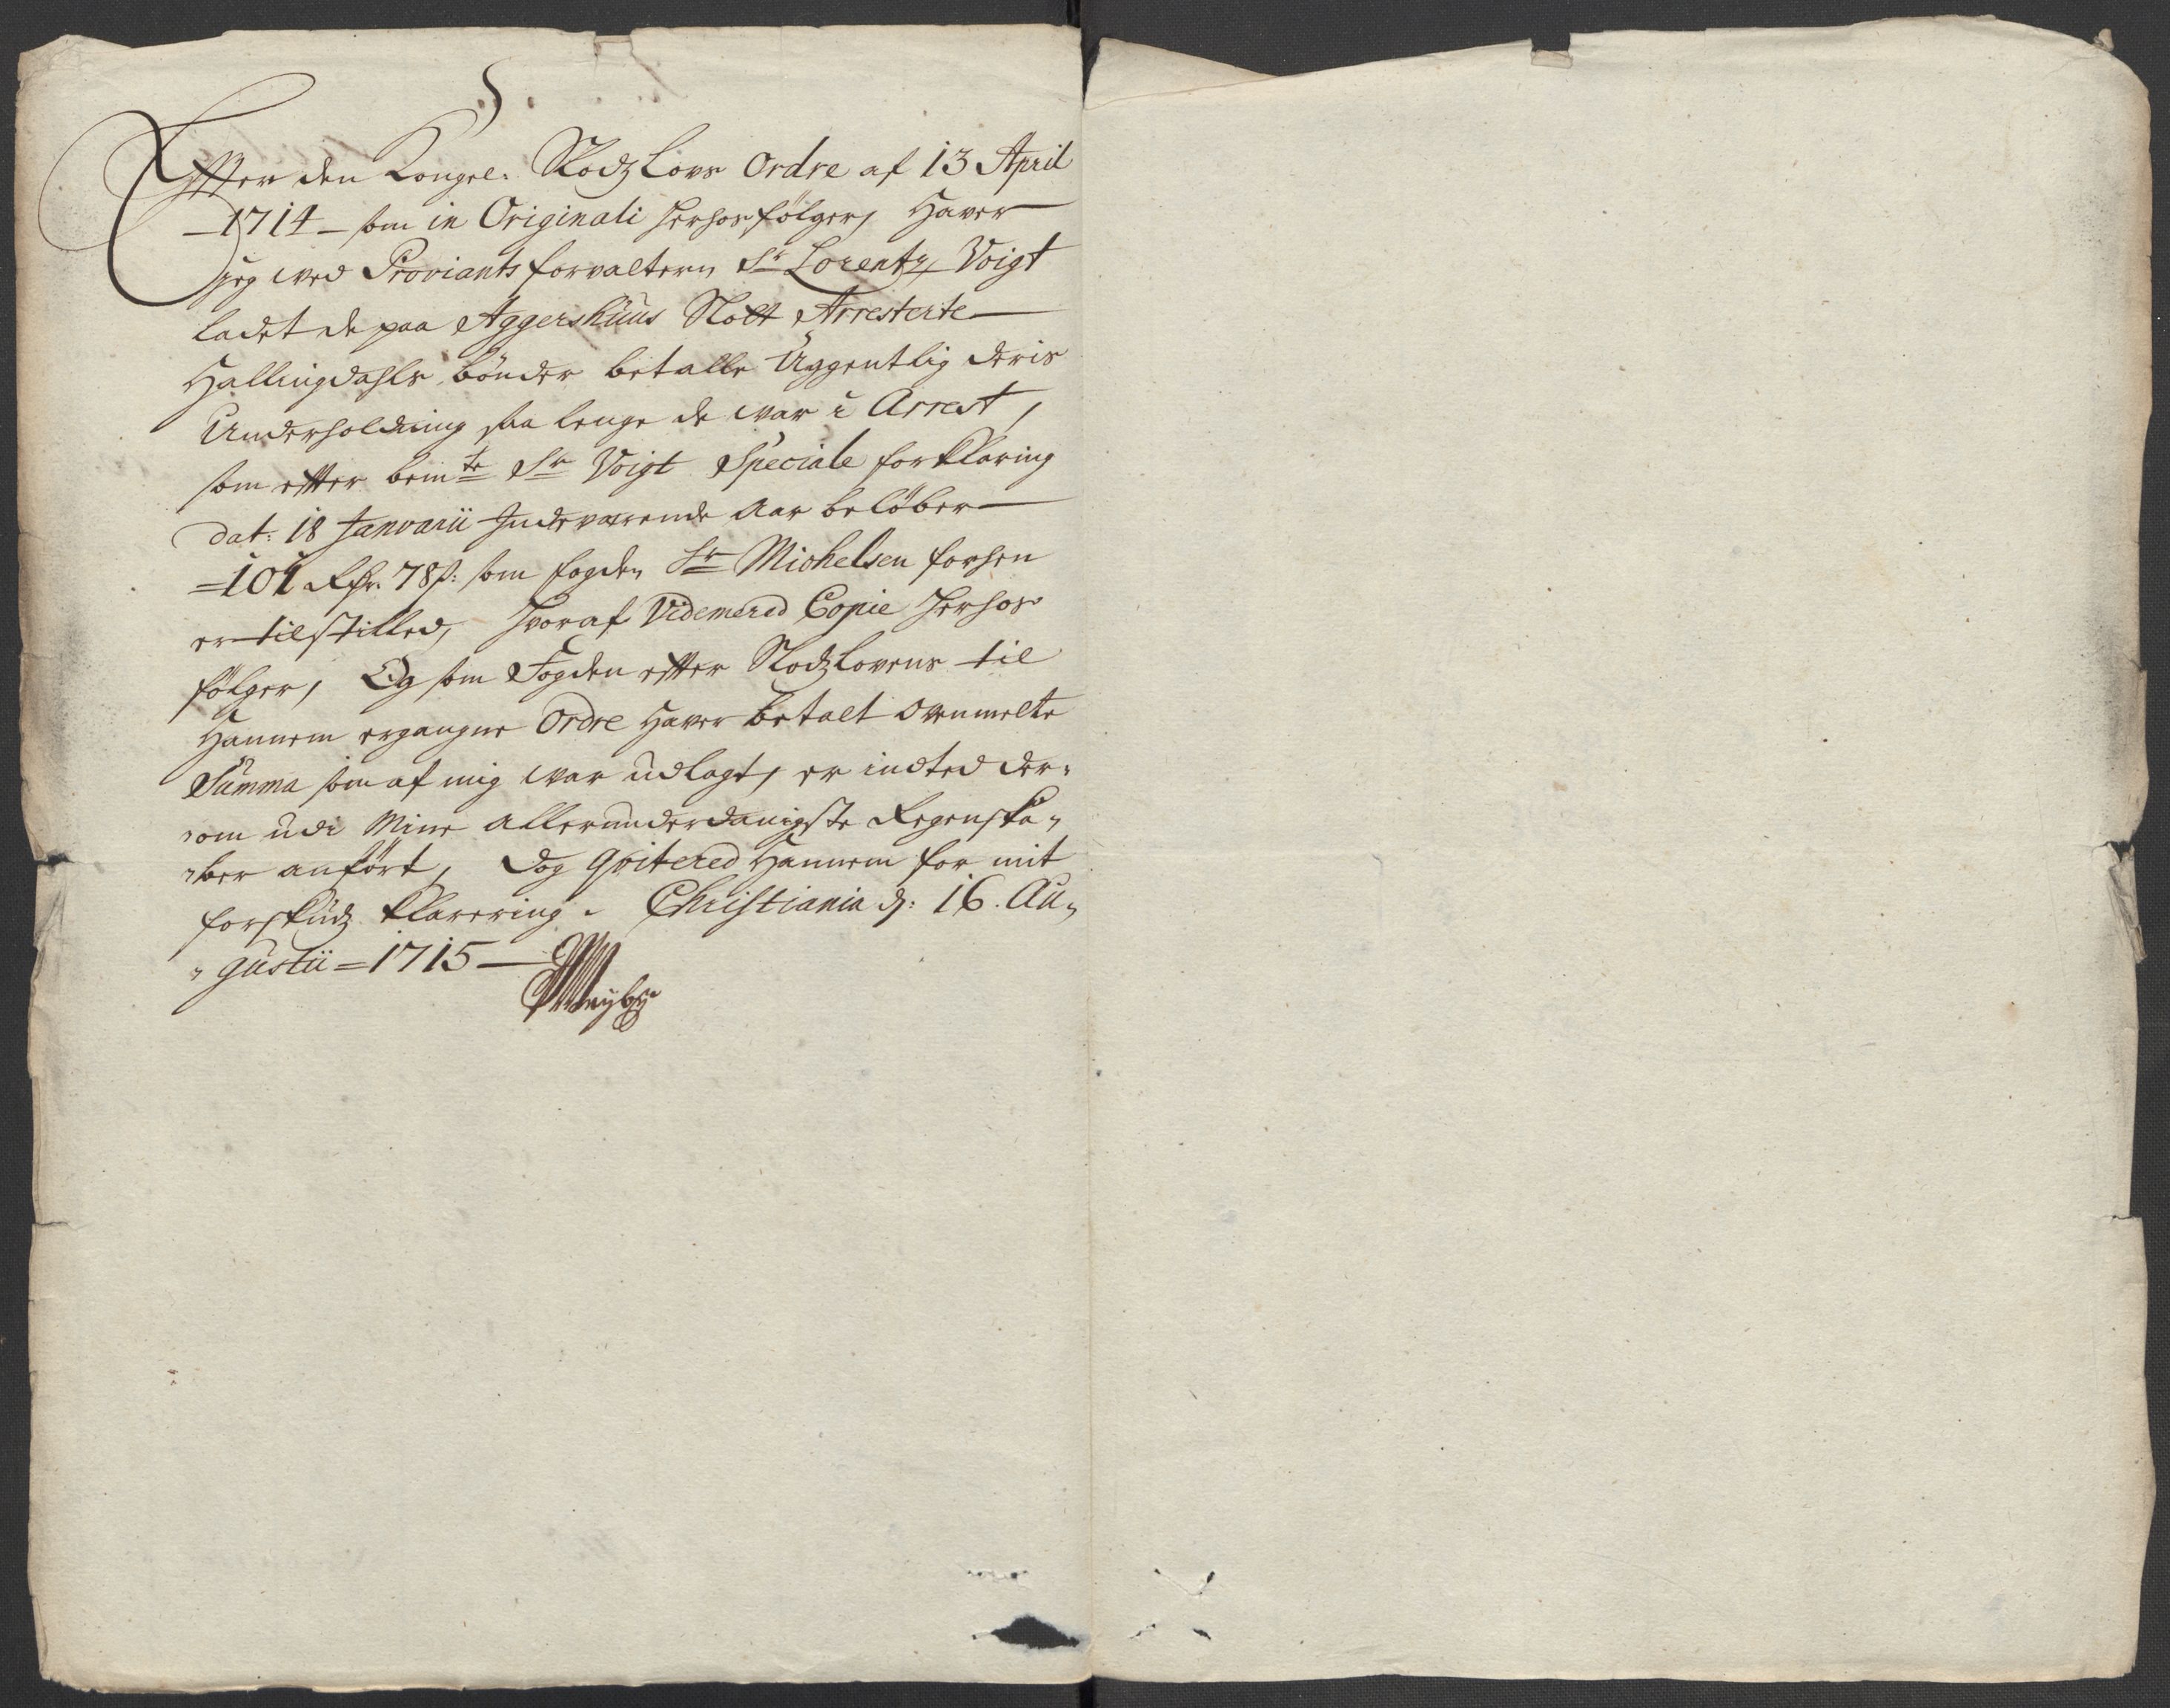 Effter den Kongel: Slodz Lovs Ordre af 13 April
1714 som in Originali herhos følger, Haver
Jeg wed Proviants forvaltern Sr Lorentz Voigt
ladet de paa Aggershuus Slott Arresterte
Hallingdahls bönder betalle Uggentlig deris
Underholdning saa lenge de war i Arrest,
som effter bemte Sr Voigt Speciale forklaring
dat: 18 Janvarii Indeværende Aar belöber
=101 Rdr. 78 s: som fogden Sr Michelsen forhen
er tilstilled, hvoraf Videmered Copie herhos
fölger, Og som Fogden effter Slodz Lovens til
Hannem ergangne Ordre Haver betalt ovenmelte
Summa som af mig war udlagt, er indted der-
om udi Mine allerunderdanigste Regenska-
ber anfört, dog qvitered Hannem for mit
forskudz klarering. Christiania d: 16. Au-
gustii = 1715